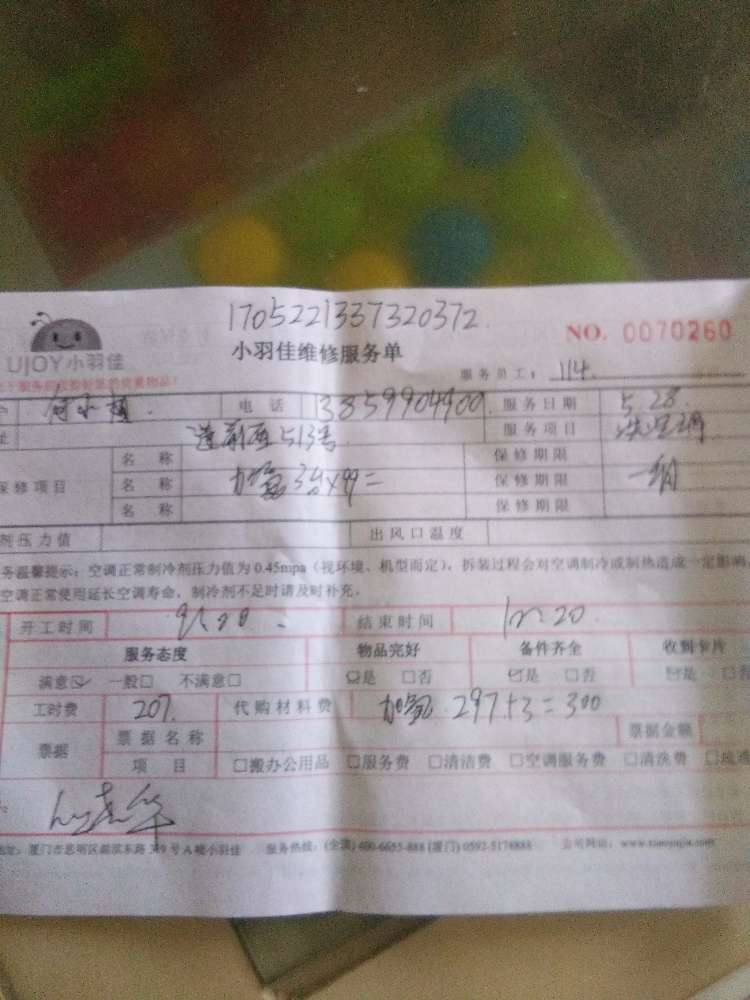 1705221337320372
NO. 0070260
UJOY小羽佳
小羽佳维修服务单
服务员工: 114.
电话 13859904900 服务日期 5.28
513号 服务项目 洗空调
名称 保修期限
保修项目 名称 加氟 3台×99= 保修期限
名称 保修期限
剂压力值 出风口温度
务温馨提示:空调正常制冷剂压力值为0.45mpa(视环境、机型而定),拆装过程会对空调制冷或制热造成一定影响
空调正常使用延长空调寿命,制冷剂不足时请及时补充。
开工时间 结束时间
服务态度 物品完好 备件齐全 收到卡片
满意☑ 一般□ 不满意□ ☑是 □否 ☑是 □否 ☑是 □否
工时费 207. 代购材料费 加氟 297+3=300
票据 票据名称 票据金额
项目 □搬办公用品 □服务费 □清洁费 □空调服务费 □清洗费
地址:厦门市思明区湖滨东路319号A幢小羽佳 服务热线:(全国)400-6655-888 (厦门)0592-5178888 公司网站:www.xiaoyujia.com